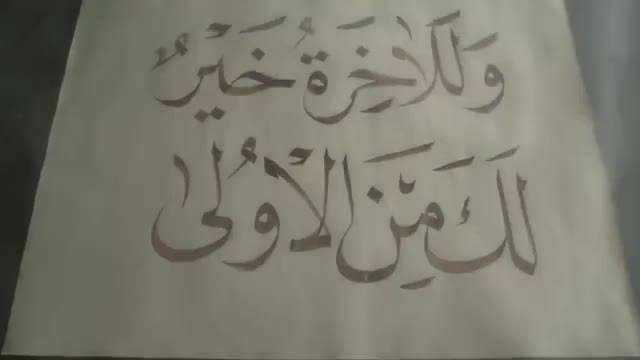 وَلَلْاٰخِرَةُ خَيْرٌ
لَكَ مِّنَ الْاُوْلٰى